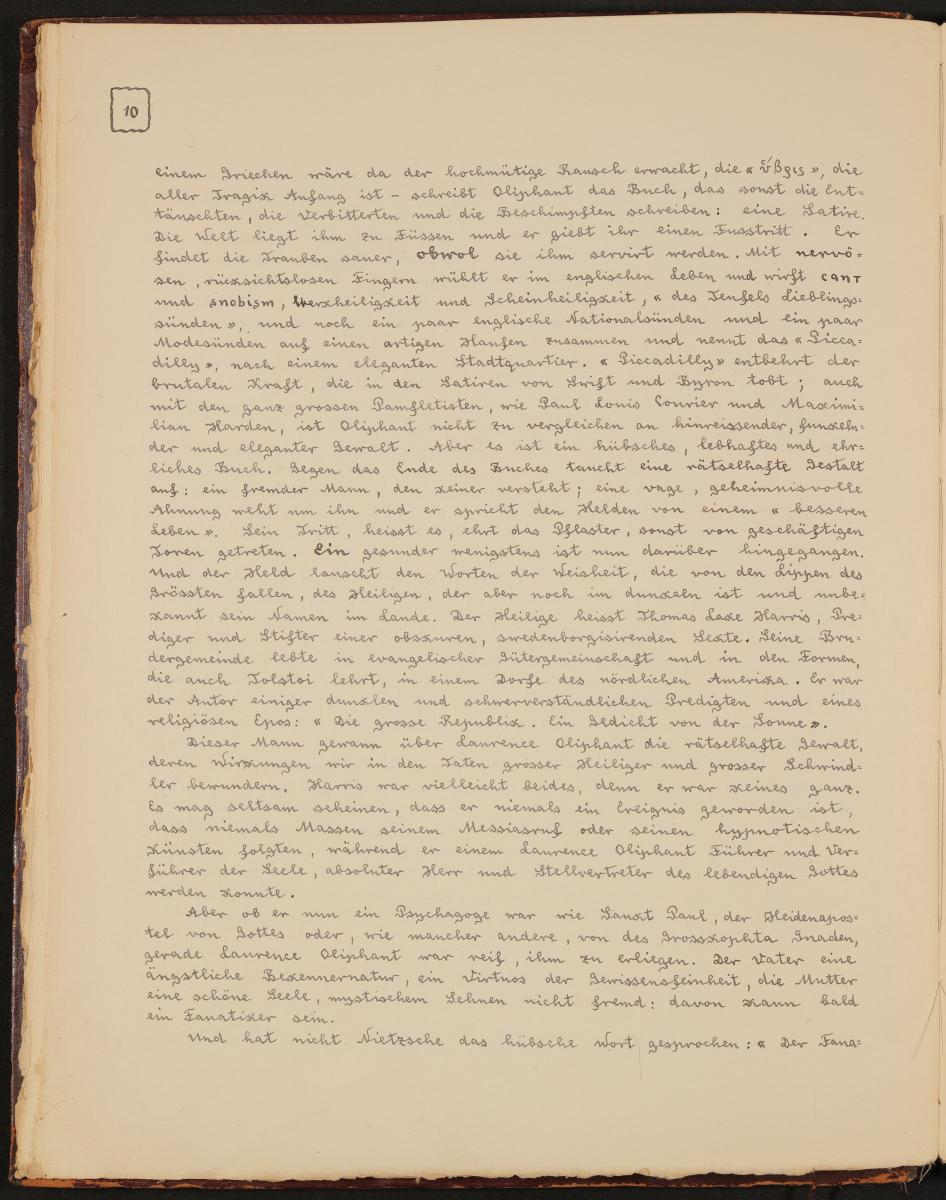 10
einem Griechen wäre da der hochmütige Rausch erwacht, die « ὕβρις », die
aller Tragik Anfang ist – schreibt Oliphant das Buch, das sonst die Ent-
täuschten, die Verbitterten und die Beschimpften schreiben: eine Satire.
Die Welt liegt ihm zu Füssen und er giebt ihr einen Fusstritt. Er
findet die Trauben sauer, obwol sie ihm servirt werden. Mit nervö-
sen, rücksichtslosen Fingern wühlt er im englischen Leben und wirft cant
und snobism, Werkheiligkeit und Scheinheiligkeit, « des Teufels Lieblings-
sünden », und noch ein paar englische Nationalsünden und ein paar
Modesünden auf einen artigen Haufen zusammen und nennt das « Picca-
dilly », nach einem eleganten Stadtquartier. « Piccadilly » entbehrt der
brutalen Kraft, die in den Satiren von Swift und Byron tobt; auch
mit den ganz grossen Pamfletisten, wie Paul Louis Courier und Maximi-
lian Harden, ist Oliphant nicht zu vergleichen an hinreissender, funkeln-
der und eleganter Gewalt. Aber es ist ein hübsches, lebhaftes und ehr-
liches Buch. Gegen das Ende des Buches taucht eine rätselhafte Gestalt
auf: ein fremder Mann, den keiner versteht; eine vage, geheimnisvolle
Ahnung weht um ihn und er spricht den Helden von einem « besseren
Leben ». Sein Tritt, heisst es, ehrt das Pflaster, sonst von geschäftigen
Toren getreten. Ein gesunder wenigstens ist nun darüber hingegangen.
Und der Held lauscht den Worten der Weisheit, die von den Lippen des
Grössten fallen, des Heiligen, der aber noch im dunkeln ist und unbe-
kannt sein Namen im Lande. Der Heilige heisst Thomas Lake Harris, Pre-
diger und Stifter einer obskuren, swedenborgisirenden Sekte. Seine Bru-
dergemeinde lebte in evangelischer Gütergemeinschaft und in den Formen,
die auch Tolstoi lehrt, in einem Dorfe des nördlichen Amerika. Er war
der Autor einiger dunklen und schwerverständlichen Predigten und eines
religiösen Epos: « Die grosse Republik. Ein Gedicht von der Sonne ».
Dieser Mann gewann über Laurence Oliphant die rätselhafte Gewalt,
deren Wirkungen wir in den Taten grosser Heiliger und grosser Schwind-
ler bewundern. Harris war vielleicht beides, denn er war keines ganz.
Es mag seltsam scheinen, dass er niemals ein Ereignis geworden ist,
dass niemals Massen seinem Messiasruf oder seinen hypnotischen
Künsten folgten, während er einem Laurence Oliphant Führer und Ver-
führer der Seele, absoluter Herr und Stellvertreter des lebendigen Gottes
werden konnte.
Aber ob er nun ein Psychagoge war wie Sankt Paul, der Heidenapos-
tel von Gottes oder, wie mancher andere, von des Grosskophta Gnaden,
gerade Laurence Oliphant war reif, ihm zu erliegen. Der Vater eine
ängstliche Bekennernatur, ein Virtuos der Gewissensfeinheit, die Mutter
eine schöne Seele, mystischem Sehnen nicht fremd: davon kann bald
ein Fanatiker sein.
Und hat nicht Nietzsche das hübsche Wort gesprochen: « Der Fana-